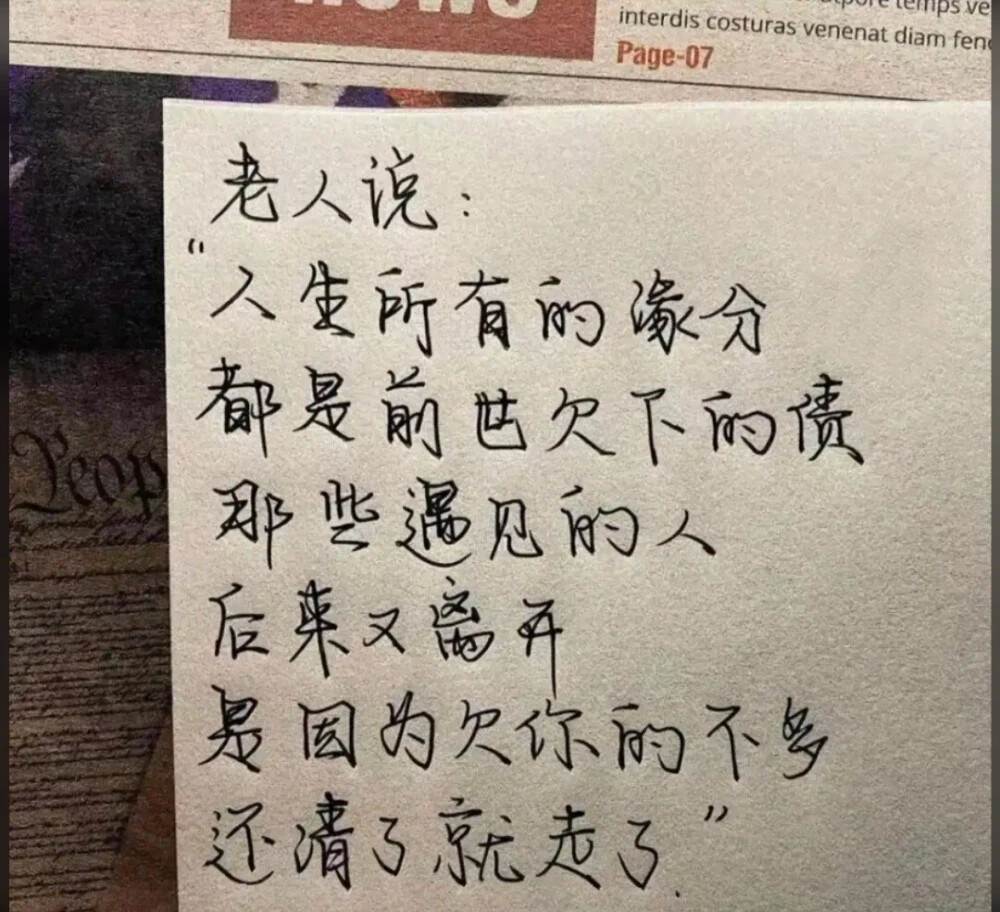 interdis costuras venenat diam fen
Page-07
老人说：
“人生所有的缘分
都是前世欠下的债
那些遇见的人
后来又离开
是因为欠你的不多
还清了就走了.”
Peop